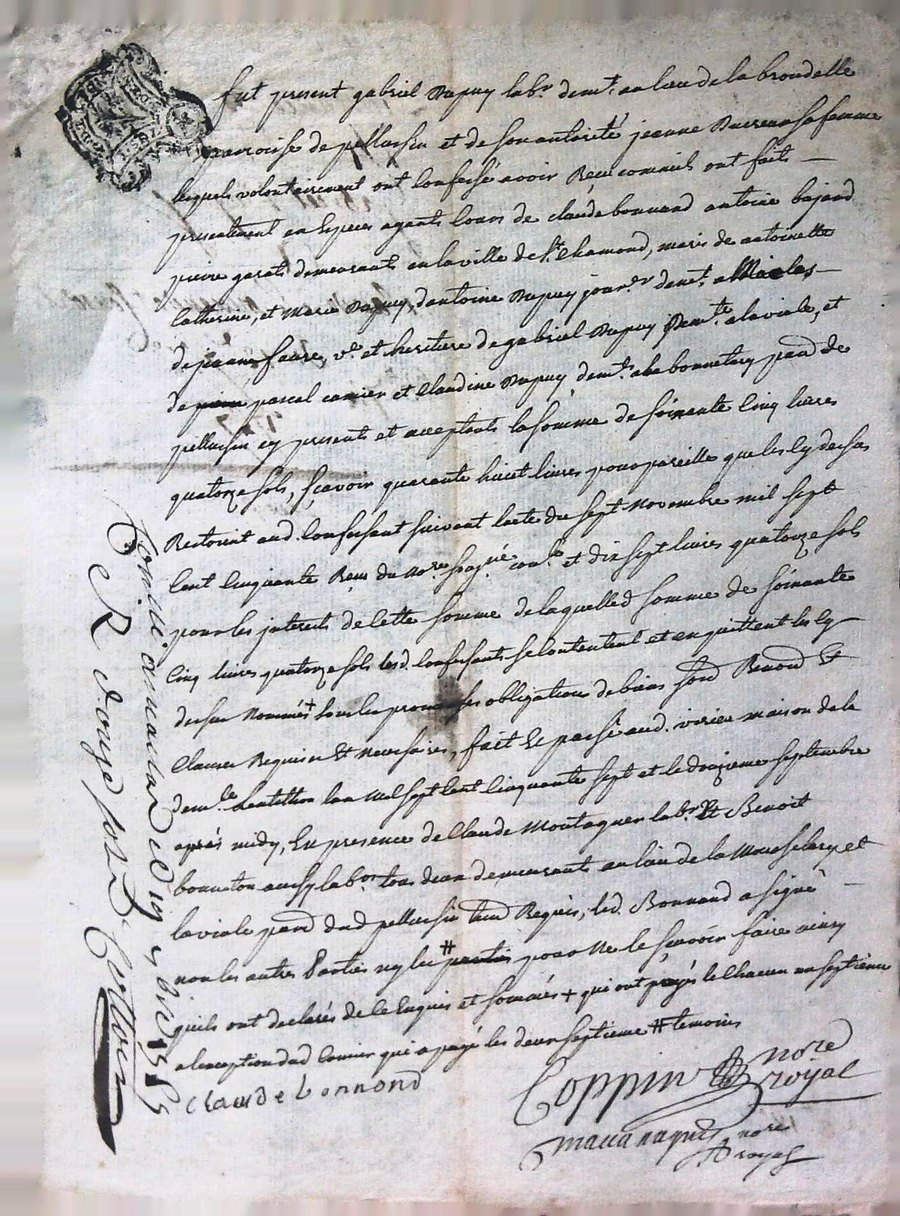 fut present gabriel Dupuy lab.r dem.t au lieu de la brondelle
parroisse de pellussin et de son autorité jeanne sa femme
lesquels volonterement ont confessé avoir Receu comm'ils ont faits —
presentement en Especes agents cours de claude bonnand antoine bajard
pierre garats demeurants en la ville de S.t chamond, maris de antoinette
Catherine, et Marie Dupuy, d'antoine Dupuy jour.er dem.t a
de jeanne faure, v.e et heritiere de gabriel Dupuy dem.te a laviale, et
de pascal camier et Claudine Dupuy, dem.t a la bonnetary par.d de
pellussin cy presents et acceptants la somme de soixante Cinq livres
quatorze sols, sçavoir quarante huit livres pour pareille que les cy dessus
Restoient aud. Confessant suivant lacte du sept Novembre mil sept
Cent Cinquante Receu du No.re et dix sept livres quatorze sols
pour les interets de Cette somme de laquelled somme de soixante
Cinq livres quatorze sols lesd. Confessants se contentent et en quittent les cy —
dessus Nommés + sous les promesses obligations de biens Renond et
Clauses Requises Et Necessaires, fait Et passé aud. virieu maison de la
dem.le Lentillon lan Mil sept Cent Cinquante sept et le dozieme septembre
après midy, En presence de Claude Montagner lab.r Et Benoit
bonneton aussy lab.r tous deux demeurants au lieu de la et
laviale par.d dud pellussin Requis, led. Bonnand a signé —
non les autres Parties ny les # pour Ne le sçavoir faire ainsy
quils ont declarés de ce Enquis et sommés + qui ont payés le Chacun un septieme
a lexception dud Camier qui a payé les deux septieme # temoins
claude bonnand
Coppin no.re royal
no.re royal
R douze sols